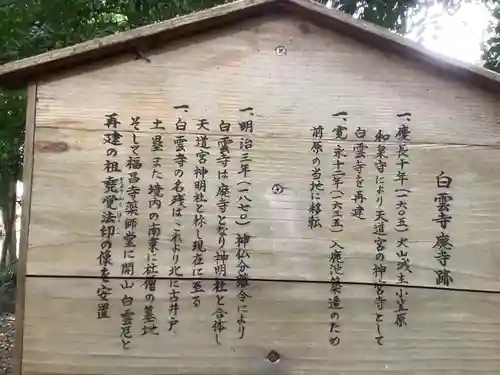 白雲寺廢寺跡
一、慶長十年(一六〇五)犬山城主小笠原
和泉守により天道宮の神宮寺として
白雲寺を再建
一、寛永十二年(一六三五)入鹿池築造のため
前原の当地に移転
一、明治三年(一八七〇)神仏分離令により
白雲寺は廃寺となり神明社と合体し
天道宮神明社と称し現在に至る
一、白雲寺の名残はこれより北に古井戸
土塁また境内の南東に社僧の墓地
そして福昌寺薬師堂に開山白雲尼と
再建の祖堯覚法印の像を安置